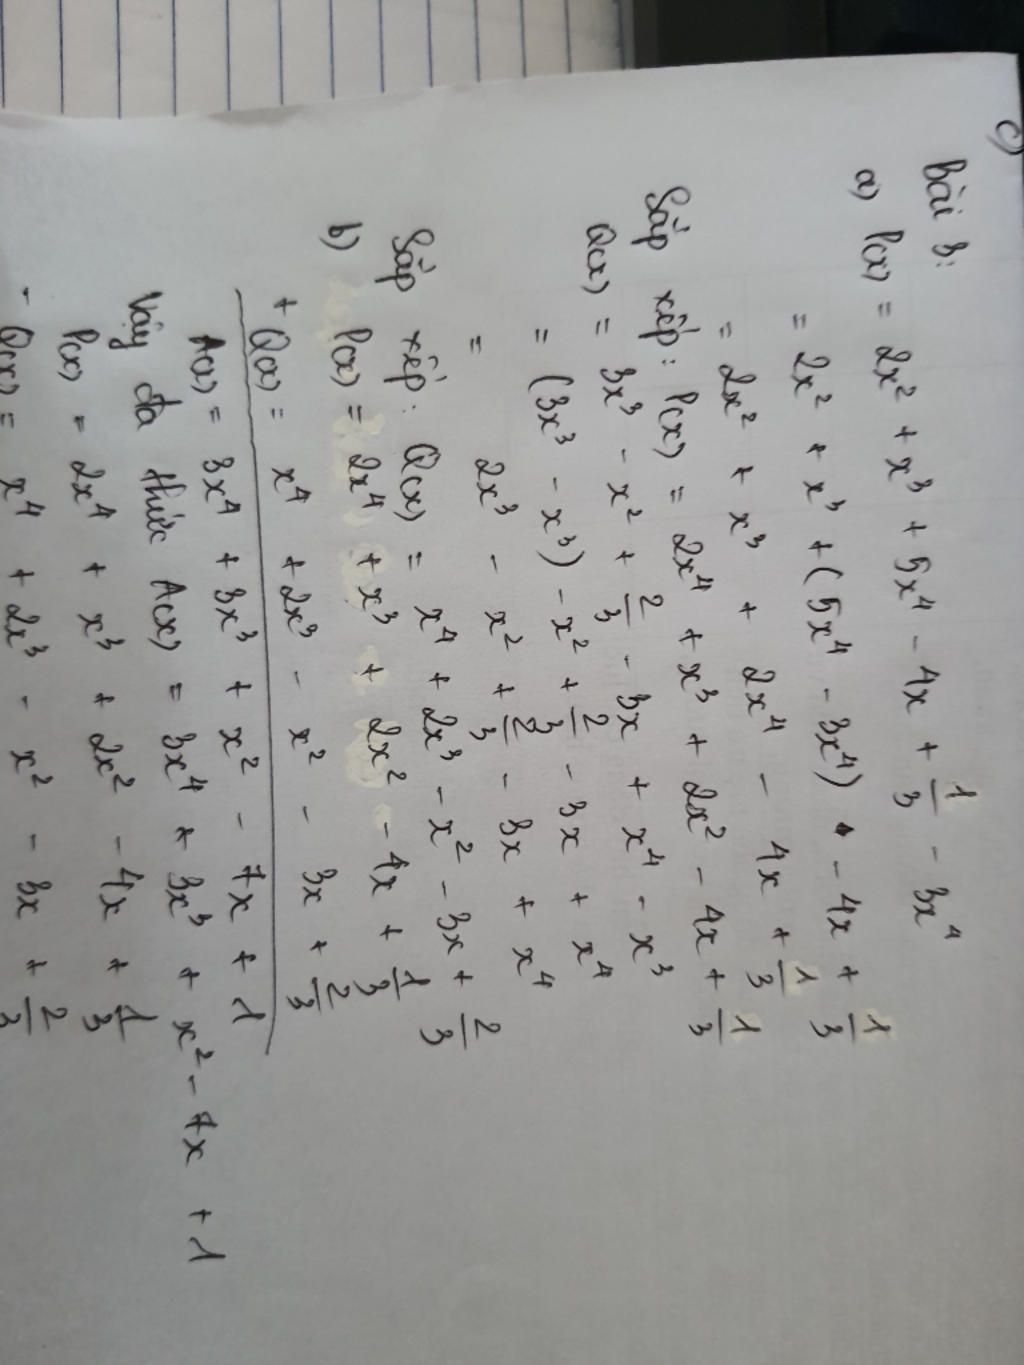 c)
Bài 3:
a) P(x) = 2x² + x³ + 5x⁴ - 4x + 1/3 - 3x⁴
= 2x² + x³ + (5x⁴ - 3x⁴) - 4x + 1/3
= 2x² + x³ + 2x⁴ - 4x + 1/3
Sắp xếp: P(x) = 2x⁴ + x³ + 2x² - 4x + 1/3
Q(x) = 3x³ - x² + 2/3 - 3x + x⁴ - x³
= (3x³ - x³) - x² + 2/3 - 3x + x⁴
= 2x³ - x² + 2/3 - 3x + x⁴
Sắp xếp: Q(x) = x⁴ + 2x³ - x² - 3x + 2/3
b) P(x) = 2x⁴ + x³ + 2x² - 4x + 1/3
+ Q(x) = x⁴ + 2x³ - x² - 3x + 2/3
A(x) = 3x⁴ + 3x³ + x² - 7x + 1
Vậy đa thức A(x) = 3x⁴ + 3x³ + x² - 7x + 1
P(x) = 2x⁴ + x³ + 2x² - 4x + 1/3
- Q(x) = x⁴ + 2x³ - x² - 3x + 2/3